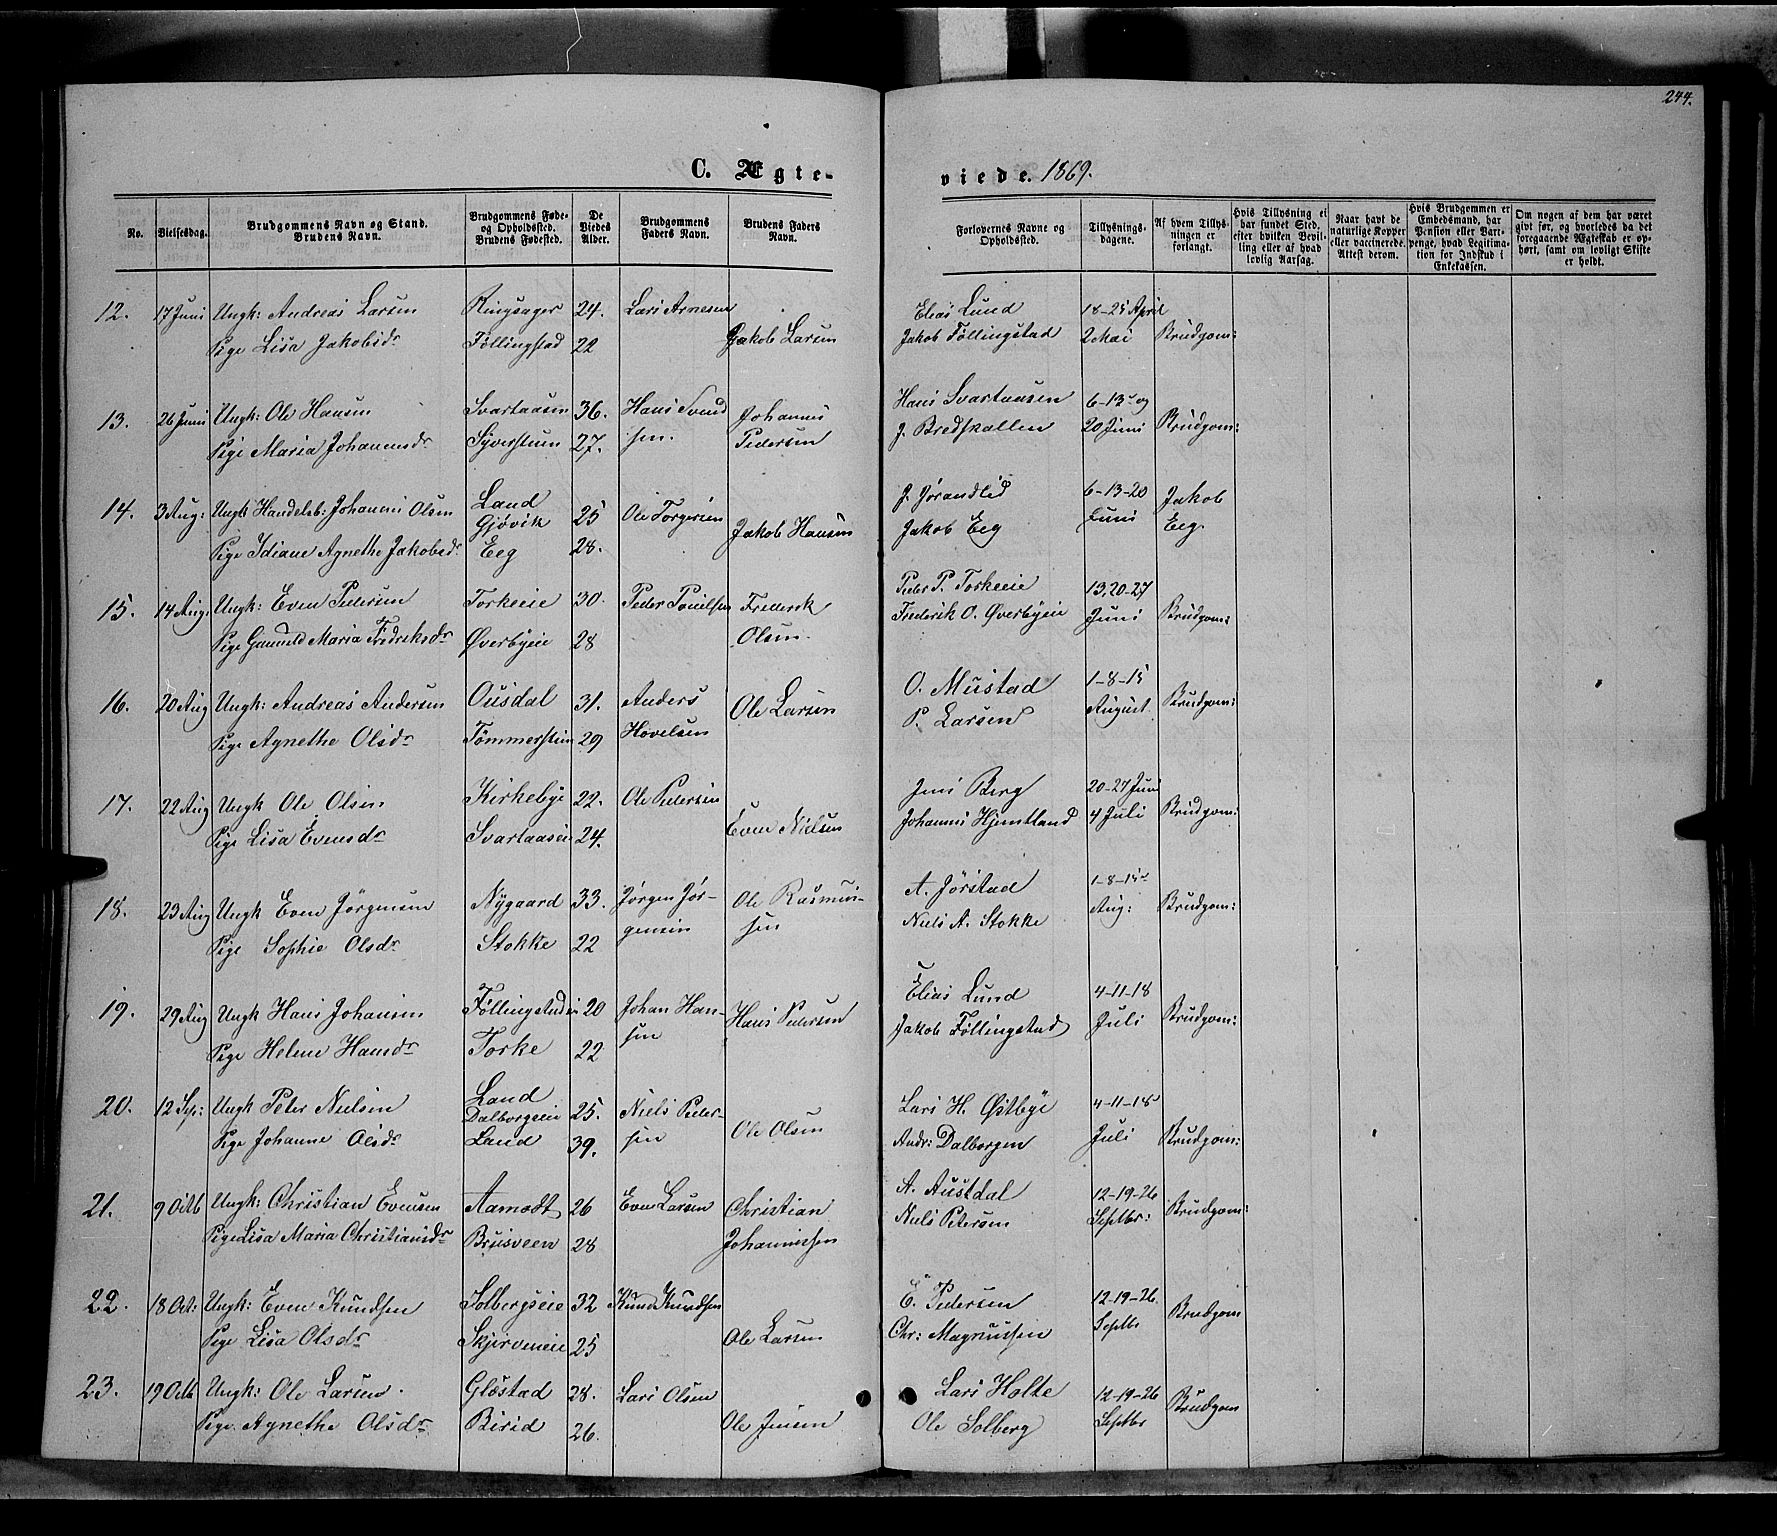 244.
C. Ægte-
viede. 1869.
No. Vielsesdag. Brudgommens Navn og Stand. Brudens Navn. Brudgommens Føde- og Opholdssted. Brudens Fødested. De Viedes Alder. Brudgommens Faders Navn. Brudens Faders Navn. Forlovernes Navne og Opholdssted. Tillysnings-dagene. Af hvem Tillys-ningen er forlangt. Hvis Tillysning ei har fundet Sted, efter hvilken Bevil-ling eller af hvad lovlig Aarsag. Naar havt de naturlige Kopper eller vaccinerede. Attest derom. Hvis Brudgommen er Embedsmand, har Pension eller Vart-penge, hvad Legitima-tion for Indskud i Enkekassen. Om nogen af dem har været givt før, og hvorledes da det foregaaende Ægteskab er op-hørt, samt om lovligt Skifte er holdt.
12. 17 Juni Ungk: Andreas Larsen Ringsager 24. Lars Arnesen Elias Lund 18-25 April
Pige Lisa Jakobsdr Føllingstad 22 Jakob Larsen Jakob Føllingstad 2 Mai Brudgom:
13. 26 Juni Ungk: Ole Hansen Svartaasen 36. Hans Svend Johannes Hans Svartaasen 6-13 og
Pige Maria Johannesdr Syverstuen 27. sen. Pedersen J. Bredskallen 20 Juni Brudgom:
14. 3 Aug: Ungk Handelsb: Johannes Olsen Land Gjøvik 25 Ole Torgersen J. Jørandlid 6-13-20 Jakob
Pige Idiane Agnethe Jakobsdr Eeg 28. Jakob Hansen Jakob Eeg Juni Eeg.
15. 14 Aug: Ungk: Even Pedersen Torkeeie 30. Peder Poulsen Frederik Peder P. Torkeeie 13,20-27
Pige Gunnild Maria Fredriksdr Øverbyeie 28 Olsen. Frederik O. Øverbyeie Juni Brudgom:
16. 20 Aug Ungk: Andreas Andersen Ousdal 31. Anders Ole Larsen O. Mustad 1-8-15
Pige Agnethe Olsdr Tømmerstuen 29 Hovelsen P. Larsen August. Brudgom:
17. 22 Aug Ungk Ole Olsen Kirkebye 22. Ole Pedersen Jens Berg 20-27 Juni
Pige Lisa Evensdr Svartaasen 24. Even Nielsen Johannes Hjemtland 4 Juli Brudgom:
18. 23 Aug Ungk Even Jørgensen Nygaard 33. Jørgen Jør- Ole Rasmus- A. Jørstad 1-8-15
Pige Sophie Olsdr Stokke 22 gensen sen Niels A. Stokke Aug: Brudgom:
19. 29 Aug Ungk Hans Johansen Føllingstad 20 Johan Han- Hans Pedersen Elias Lund 4-11-18
Pige Helene Hansdr Torke 22 sen Jakob Føllingstad Juli Brudgom:
20. 12 Sep: Ungk Peter Nielsen Land Dalborgeie 25. Niels Peder- Lars H. Østbye 4-11-18
Pige Johanne Olsdr Land 39. sen Ole Olsen Andr: Dalborgen Juli Brudgom:
21. 9 Octb Ungk: Christian Evensen Aamodt 26 Even Larsen Christian A. Austdal 12-19-26
Pige Lisa Maria Christiansdr Brusveen 28 Johannessen Niels Petersen Septbr: Brudgom:
22. 18 Oct: Ungk: Even Knudsen Solbergseie 32 Knud Knudsen E. Pedersen 12-19-26
Pige Lisa Olsdr Skjerveneie 25 Ole Larsen Chr: Magnussen Septbr Brudgom
23. 19 Octb Ungk: Ole Larsen Gløstad 28. Lars Olsen Lars Holte 12-19-26
Pige Agnethe Olsdr Birid 26. Ole Jensen Ole Solberg Septbr Brudgom